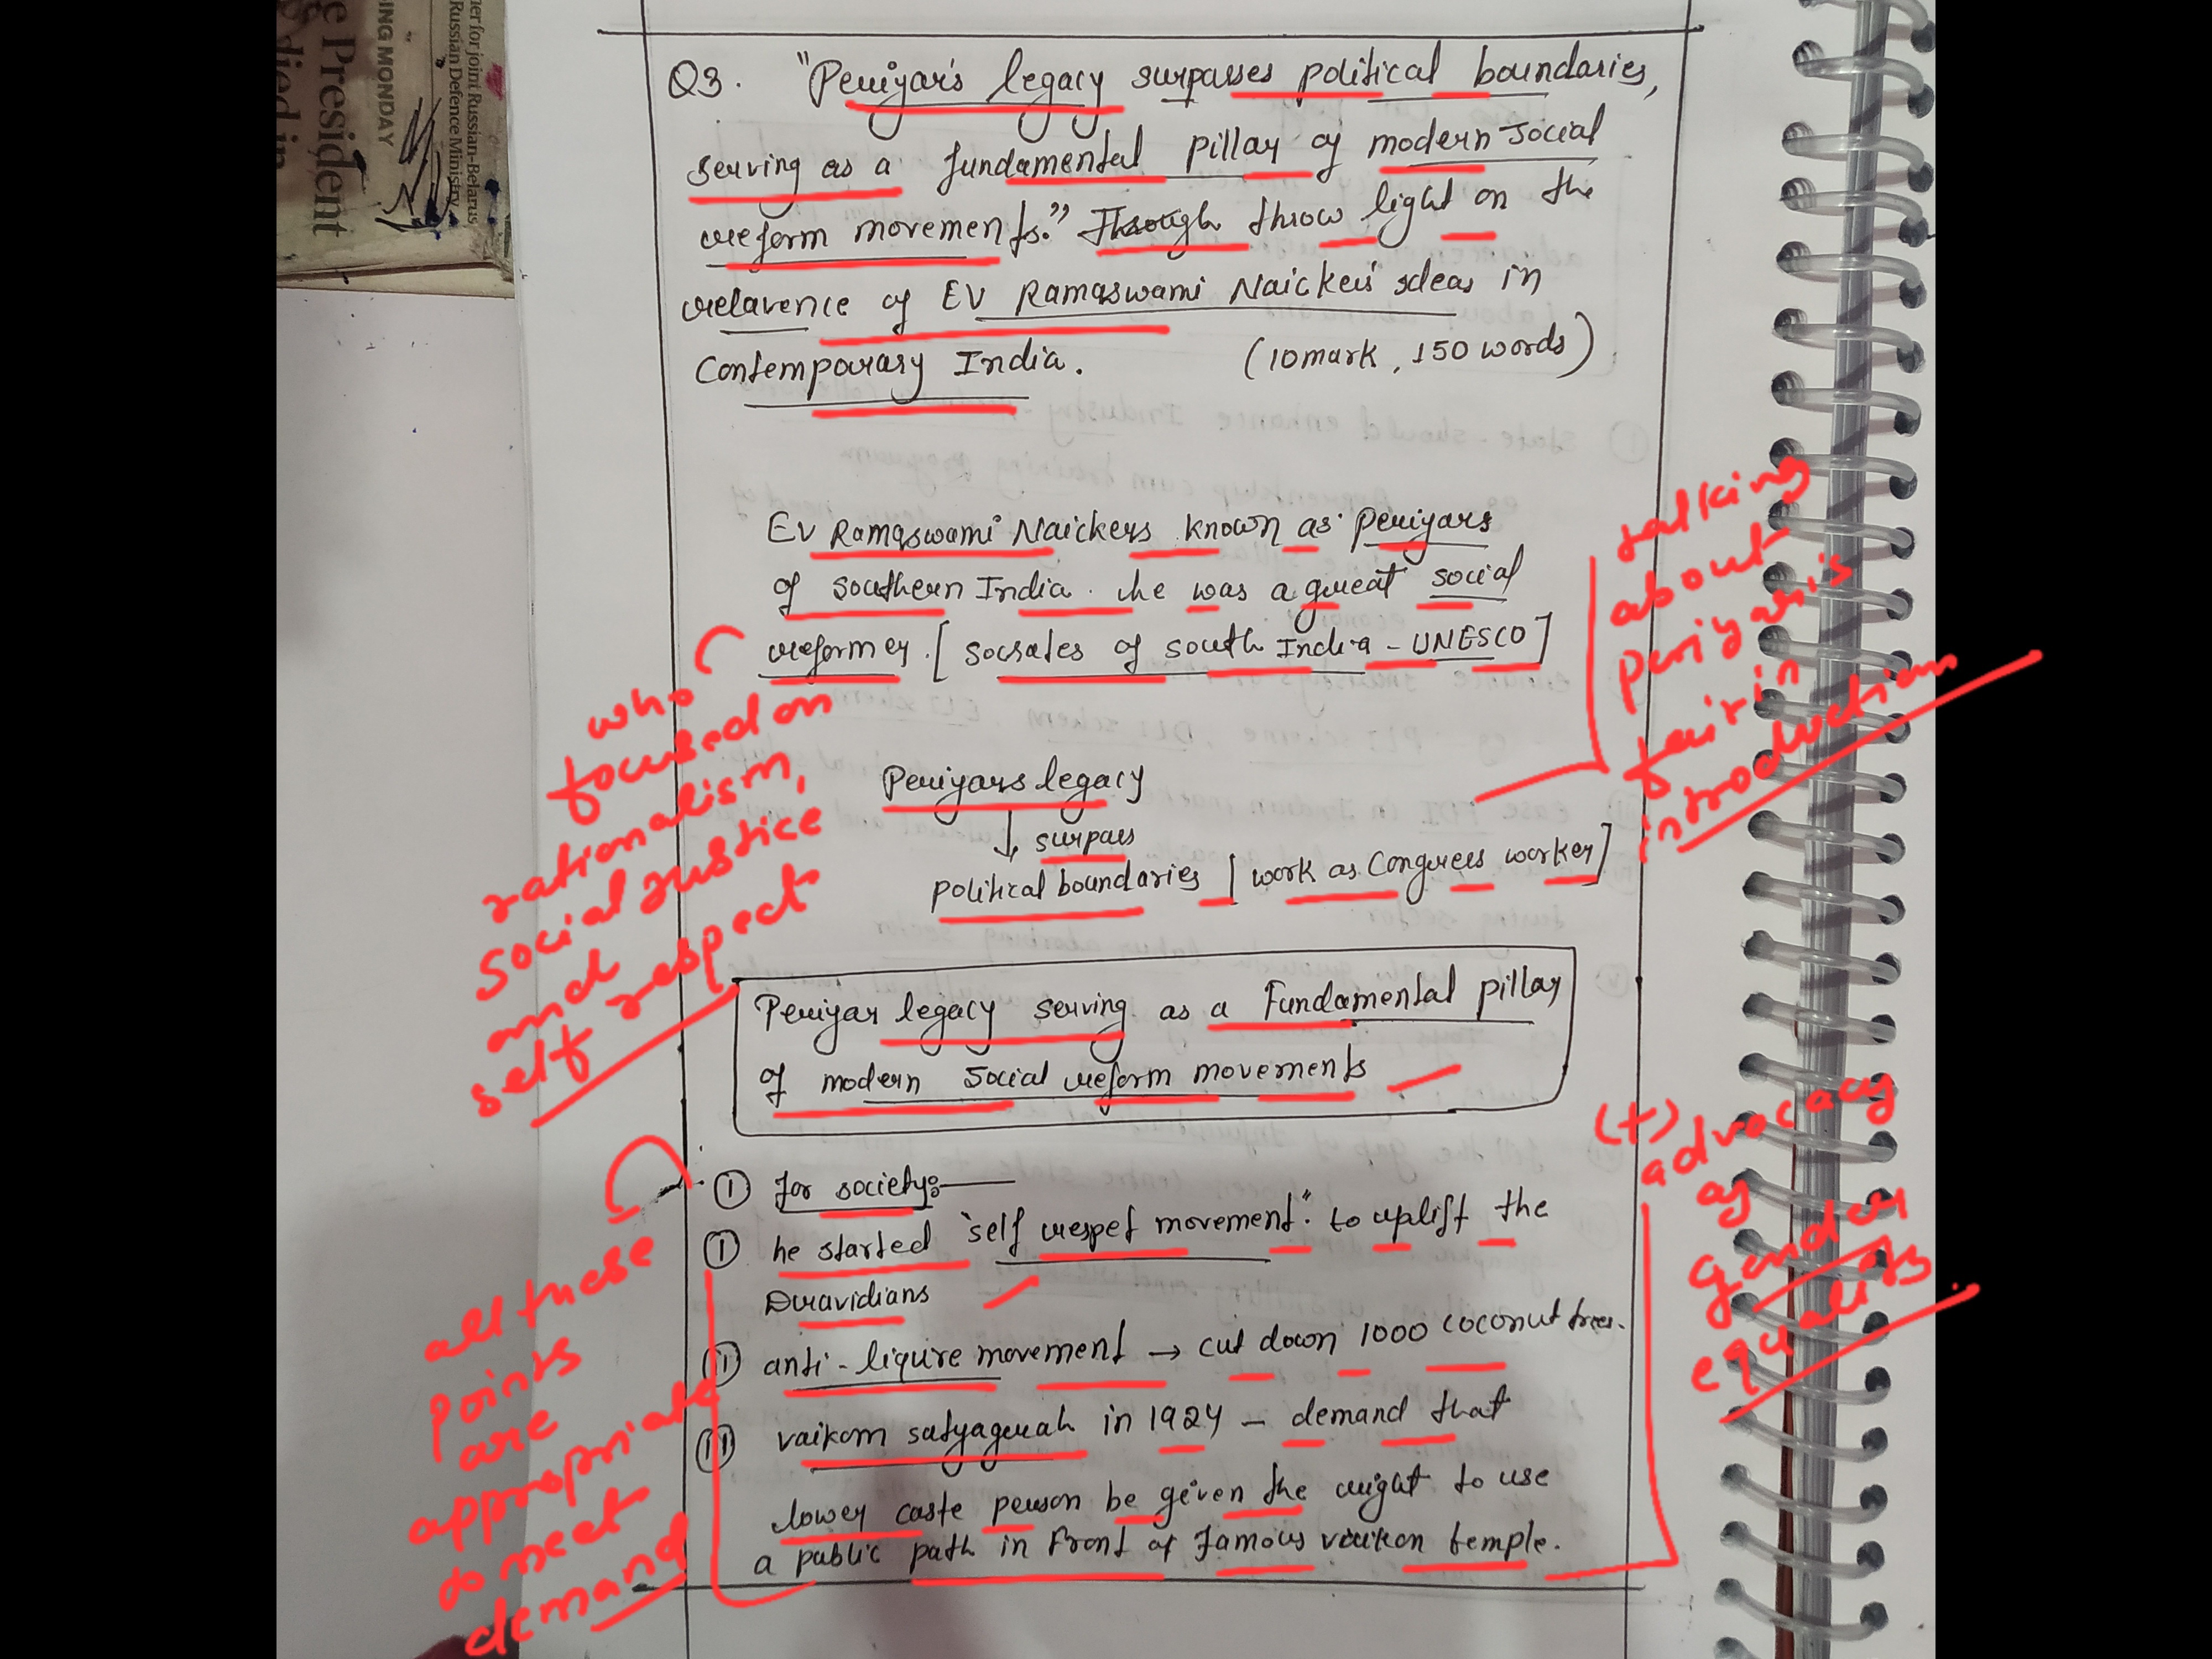 e President
died in
ING MONDAY
her for joint Russian-Belarus
Russian Defence Ministry
Q3. "Periyar's legacy surpasses political boundaries,
serving as a fundamental pillar of modern social
reform movements." Through throw light on the
relavence of EV Ramaswami Naicker's ideas in
Contemporary India. (10mark, 150 words)
EV Ramaswami Naickers known as Periyars
of southern India. he was a great social
reformer. [Socrates of south India - UNESCO]
who
focused on
rationalism,
social justice
and
self respect
talking
about
periyar's
fair in
introduction
Periyars legacy
↓ surpass
political boundaries [work as Congress worker]
Periyar legacy serving as a Fundamental pillar
of modern Social reform movements
① for society:—
① he started "self respet movement." to uplift the
Dravidians
(ii) anti-liquire movement → cut down 1000 coconut trees.
(iii) vaikom satyagrah in 1924 - demand that
lower caste person be given the right to use
a public path in front of famous vaikon temple.
all these
points
are
appropriate
to meet
demand
(+)
advocacy
of
gender
equality.